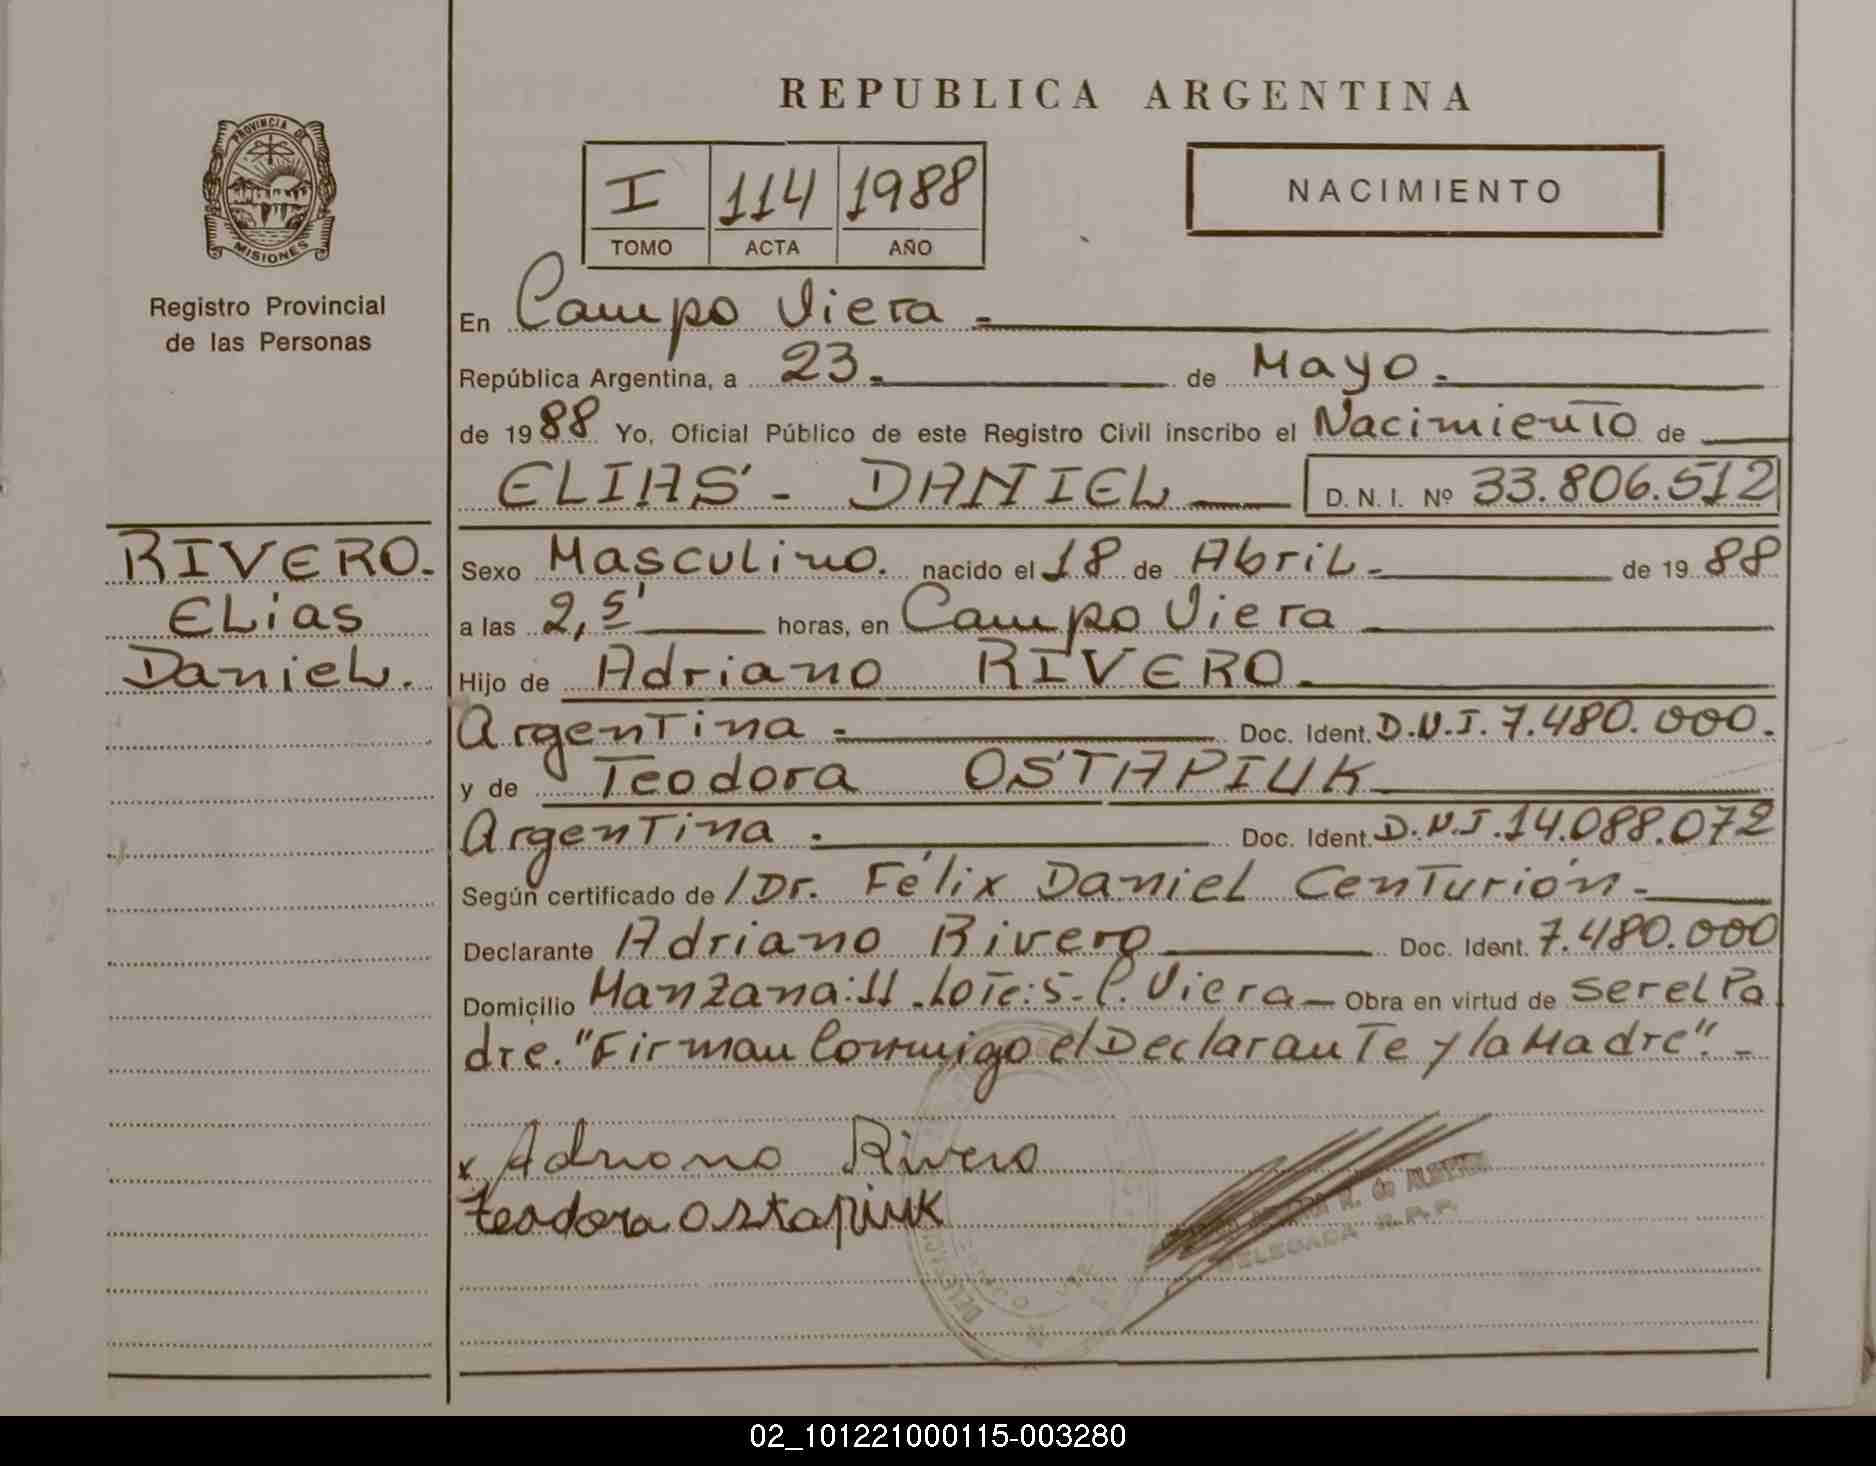 REPUBLICA ARGENTINA
PROVINCIA DE
MISIONES
Registro Provincial
de las Personas
I 114 1988
TOMO ACTA AÑO
NACIMIENTO
En Campo Viera.-
República Argentina, a 23.- de Mayo.-
de 1988 Yo, Oficial Público de este Registro Civil inscribo el Nacimiento de
ELIAS - DANIEL D. N. I. Nº 33.806.512
RIVERO.-
Elias
Daniel.
Sexo Masculino. nacido el 18 de Abril.- de 1988
a las 2,5' horas, en Campo Viera
Hijo de Adriano RIVERO.-
Argentina.- Doc. Ident. D.N.I. 7.480.000.
y de Teodora OSTAPIUK
Argentina.- Doc. Ident. D.N.I. 14.088.072
Según certificado de /Dr. Félix Daniel Centurión.-
Declarante Adriano Rivero Doc. Ident. 7.480.000
Domicilio Manzana:11.Lote:5-C.Viera- Obra en virtud de ser el Pa
dre. "Firman Conmigo el Declarante y la Madre".-
x Adriano Rivero
Teodora Ostapiuk
R. de
DELEGADA R.P.P.
02_101221000115-003280